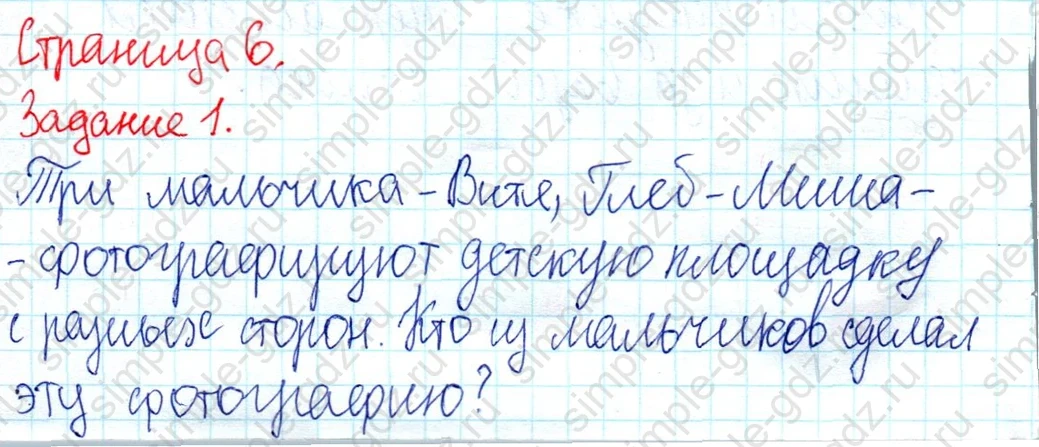 Страница 6.
Задание 1.
Три мальчика - Витя, Глеб - Миша -
- фотографируют детскую площадку
с разных сторон. Кто из мальчиков сделал
эту фотографию?
simple-gdz.ru